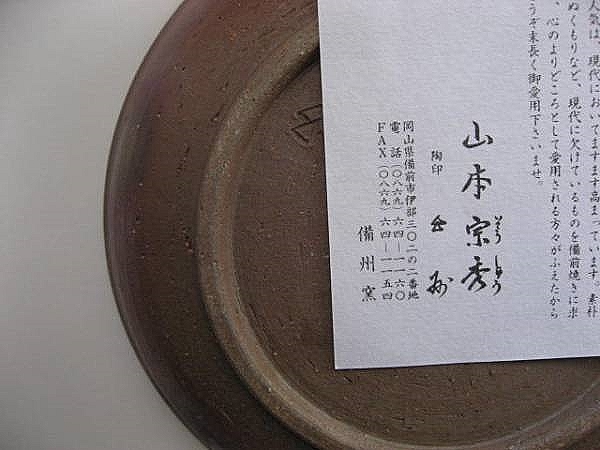 人気は、現代においてますます高まっています。素朴
ぬくもりなど、現代に欠けているものを備前焼きに求
、心のよりどころとして愛用される方々がふえたから
うぞ末長く御愛用下さいませ。
山本宗秀
そうしゅう
陶印
岡山県備前市伊部三〇二の二番地
電話(〇八六九)六四―一一六〇
FAX(〇八六九)六四―一一五四
備州窯